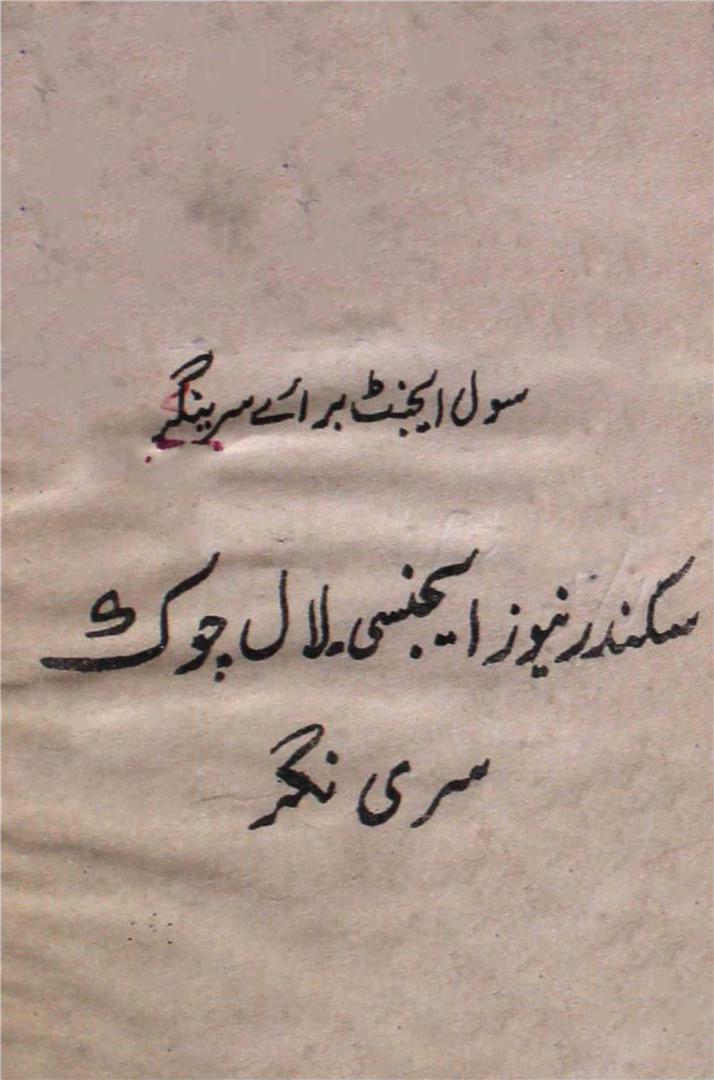 سول ایجنٹ برائے سرینگر
سکندر نیوز ایجنسی۔ لال چوک
سری نگر